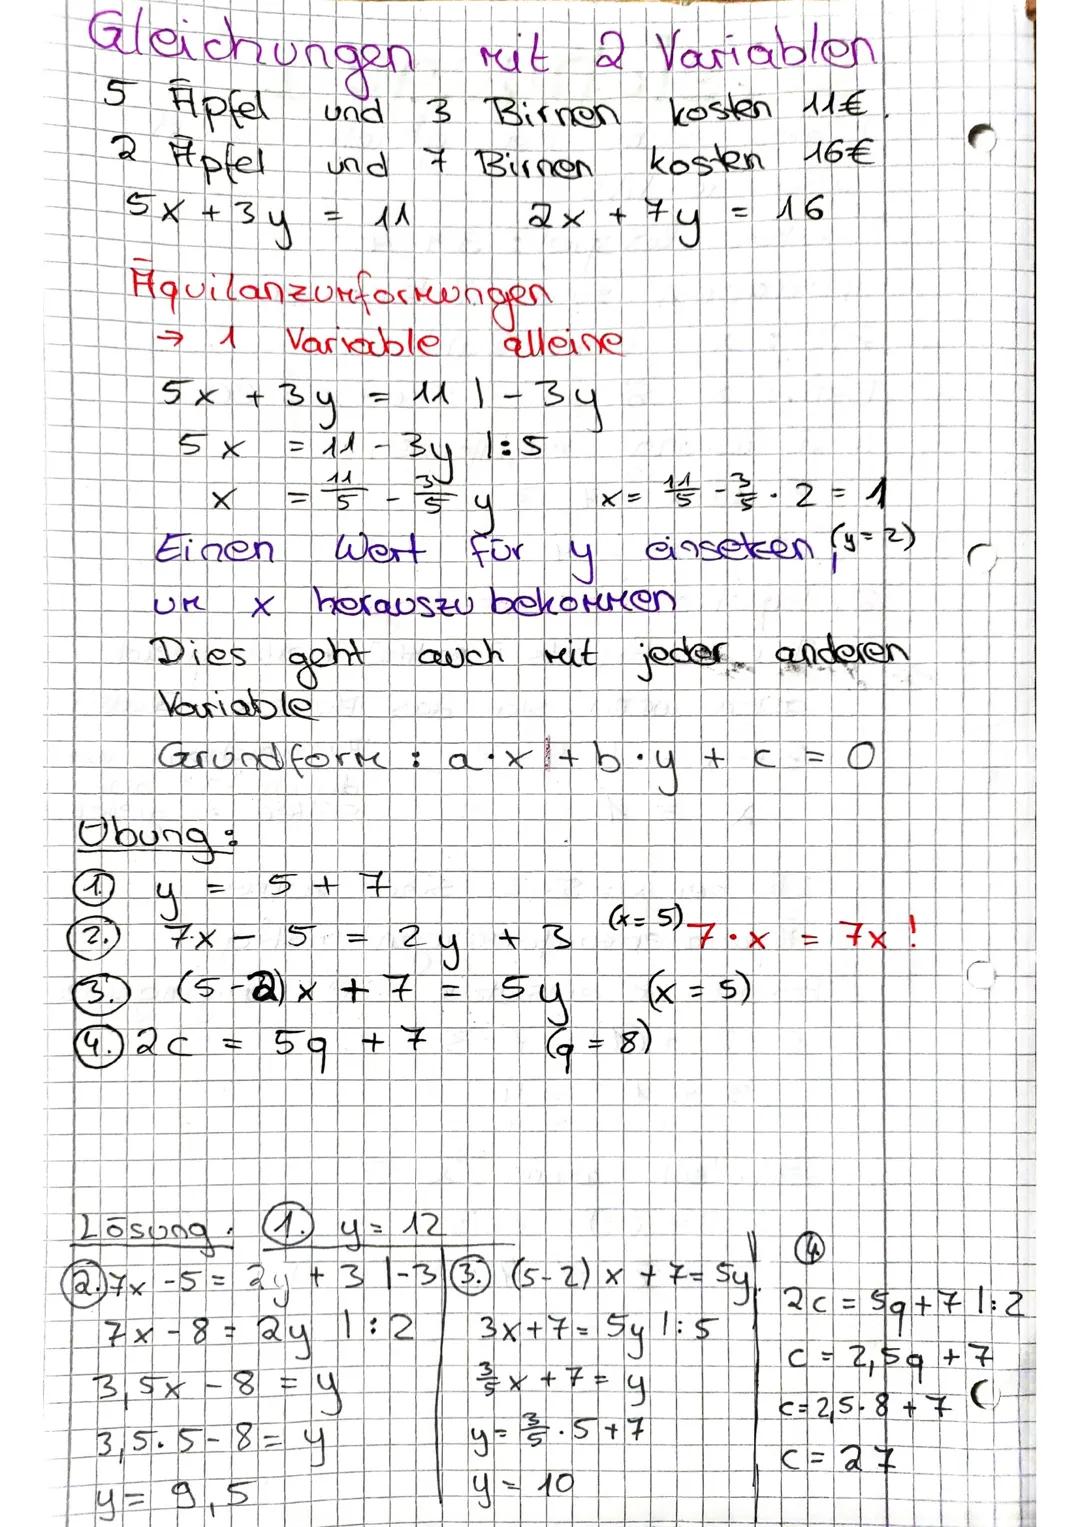 Gleichungen mit 2 Variablen
5 Äpfel und 3 Birnen kosten 11€.
2 Äpfel und 7 Birnen kosten 16€
5x + 3y = 11 2x + 7y = 16
Äquilanzumformungen
→ 1 Variable alleine
5x + 3y = 11 | - 3y
5x = 11 - 3y |:5
x = 11/5 - 3/5 y x = 11/5 - 3/5 · 2 = 1
Einen Wert für y einsetzen, (y = 2)
um x herauszubekommen
Dies geht auch mit jeder anderen
Variable
Grundform : a·x + b·y + c = 0
Übung:
1. y = 5 + 7
2. 7x - 5 = 2y + 3 (x = 5) 7·x = 7x!
3. (5-2)x + 7 = 5y (x = 5)
4. 2c = 5q + 7 (q = 8)
Lösung. 1. y = 12
2. 7x - 5 = 2y + 3 |-3
7x - 8 = 2y |:2
3,5x - 8 = y
3,5·5 - 8 = y
y = 9,5
3. (5-2)x + 7 = 5y
3x + 7 = 5y |:5
3/5 x + 7 = y
y = 3/5 · 5 + 7
y = 10
4
2c = 5q + 7 |:2
c = 2,5q + 7
c = 2,5·8 + 7
c = 27